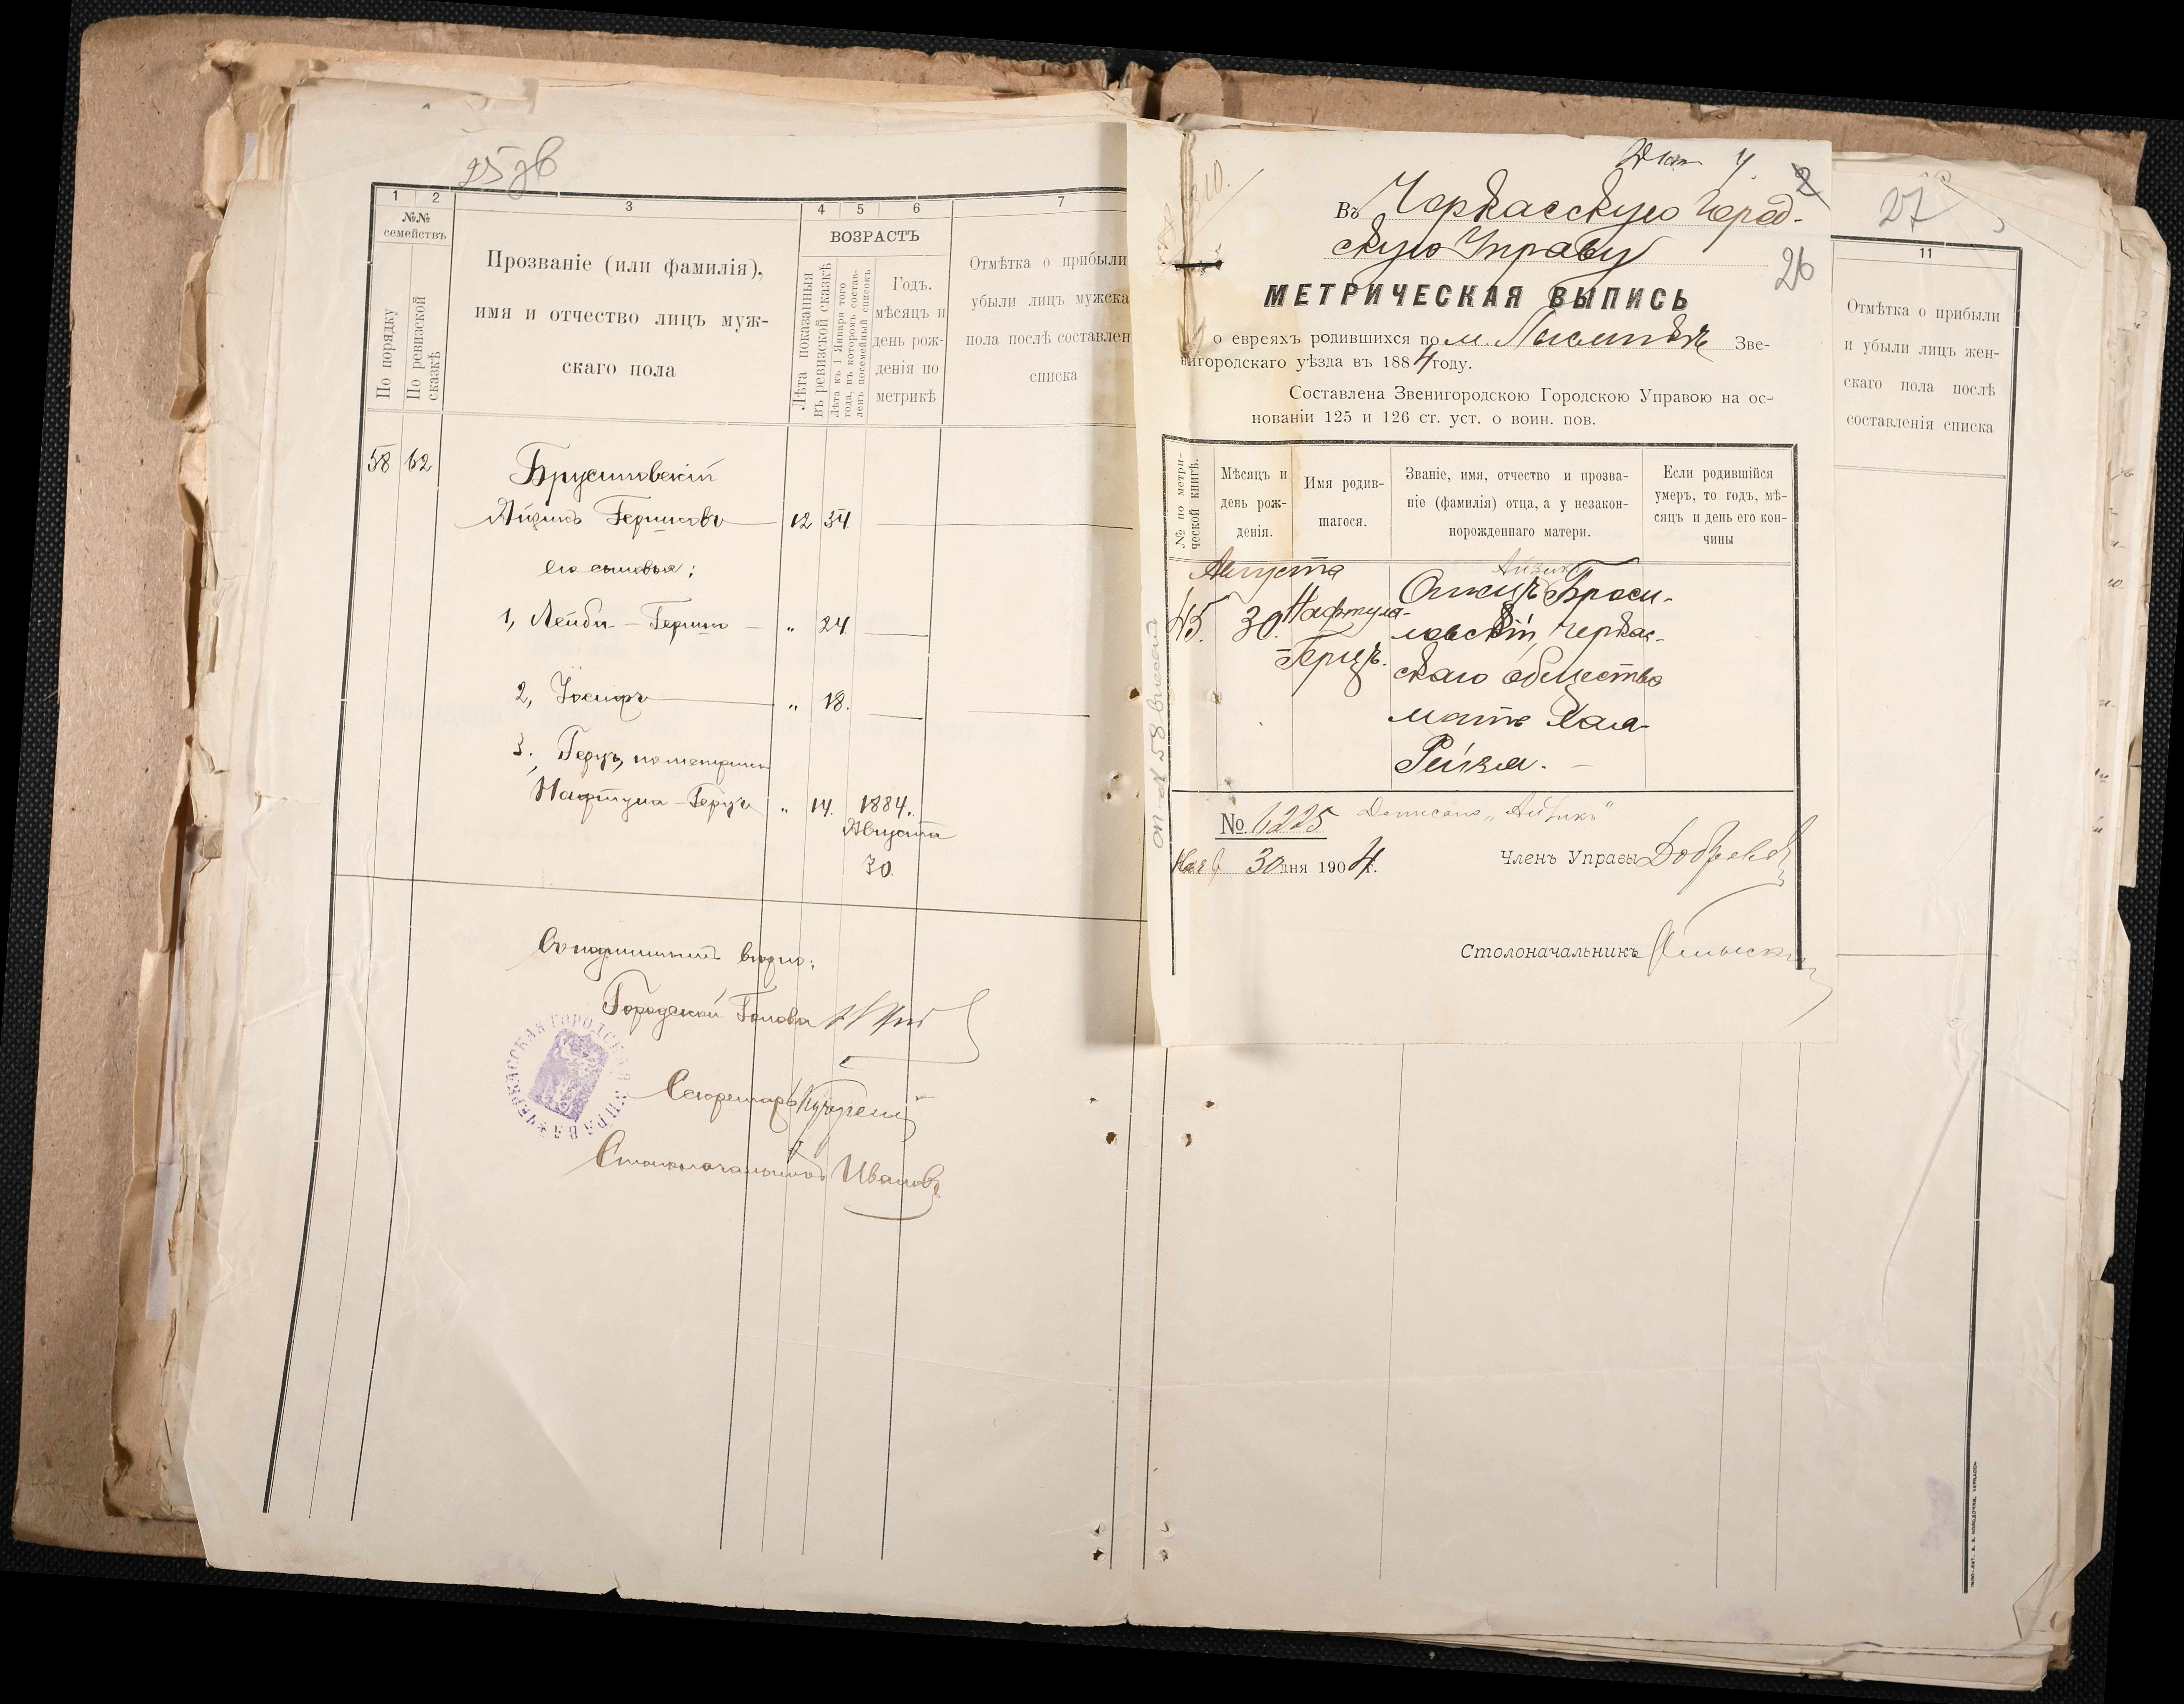 25 зв
1 2
№№
семействъ
По порядку
По ревизской сказкѣ
3
Прозваніе (или фамилія),
имя и отчество лицъ муж-
скаго пола
4 5 6
ВОЗРАСТЪ
Лѣта показанныя
въ ревизской сказкѣ
Лѣта къ 1 Января того
года, въ которомъ состав-
ленъ посемейный списокъ
Годъ,
мѣсяцъ и
день рож-
денія по
метрикѣ
7
Отмѣтка о прибыли
убыли лицъ мужска
пола послѣ составлен
списка
58 62
Брусиловскій
Айзикъ Гершковъ 12 34
его сыновья:
1, Лейба-Гершко „ 24
2, Іосифъ „ 18.
3. Герцъ, по метрикѣ
Нафтула-Герцъ „ 14. 1884.
Августа
30
Съ подлиннымъ вѣрно:
Городской Голова
Секретарь
Столоначальникъ Ивановъ
ЧЕРКАССКАЯ ГОРОДСКАЯ УПРАВА
26
Въ Черкасскую Город-
скую Управу
МЕТРИЧЕСКАЯ ВЫПИСЬ
о евреяхъ родившихся по м. Лысянкѣ Зве-
нигородскаго уѣзда въ 1884 году.
Составлена Звенигородскою Городскою Управою на ос-
нованіи 125 и 126 ст. уст. о воин. пов.
№ по метри-
ческой книгѣ.
Мѣсяцъ и
день рож-
денія.
Имя родив-
шагося.
Званіе, имя, отчество и прозва-
ніе (фамилія) отца, а у незакон-
норожденнаго матери.
Если родившійся
умеръ, то годъ, мѣ-
сяцъ и день его кон-
чины
Августа
45. 30. Нафтула-
Герцъ.
Айзикъ
Отецъ Броси-
ловскій, Черкас-
скаго общества
мать Хая-
Рейзя.
№ 6225 Дописано „Айзикъ"
Нояб 30 дня 1904 г.
Членъ Управы
Столоначальникъ
27
11
Отмѣтка о прибыли
и убыли лицъ жен-
скаго пола послѣ
составленія списка